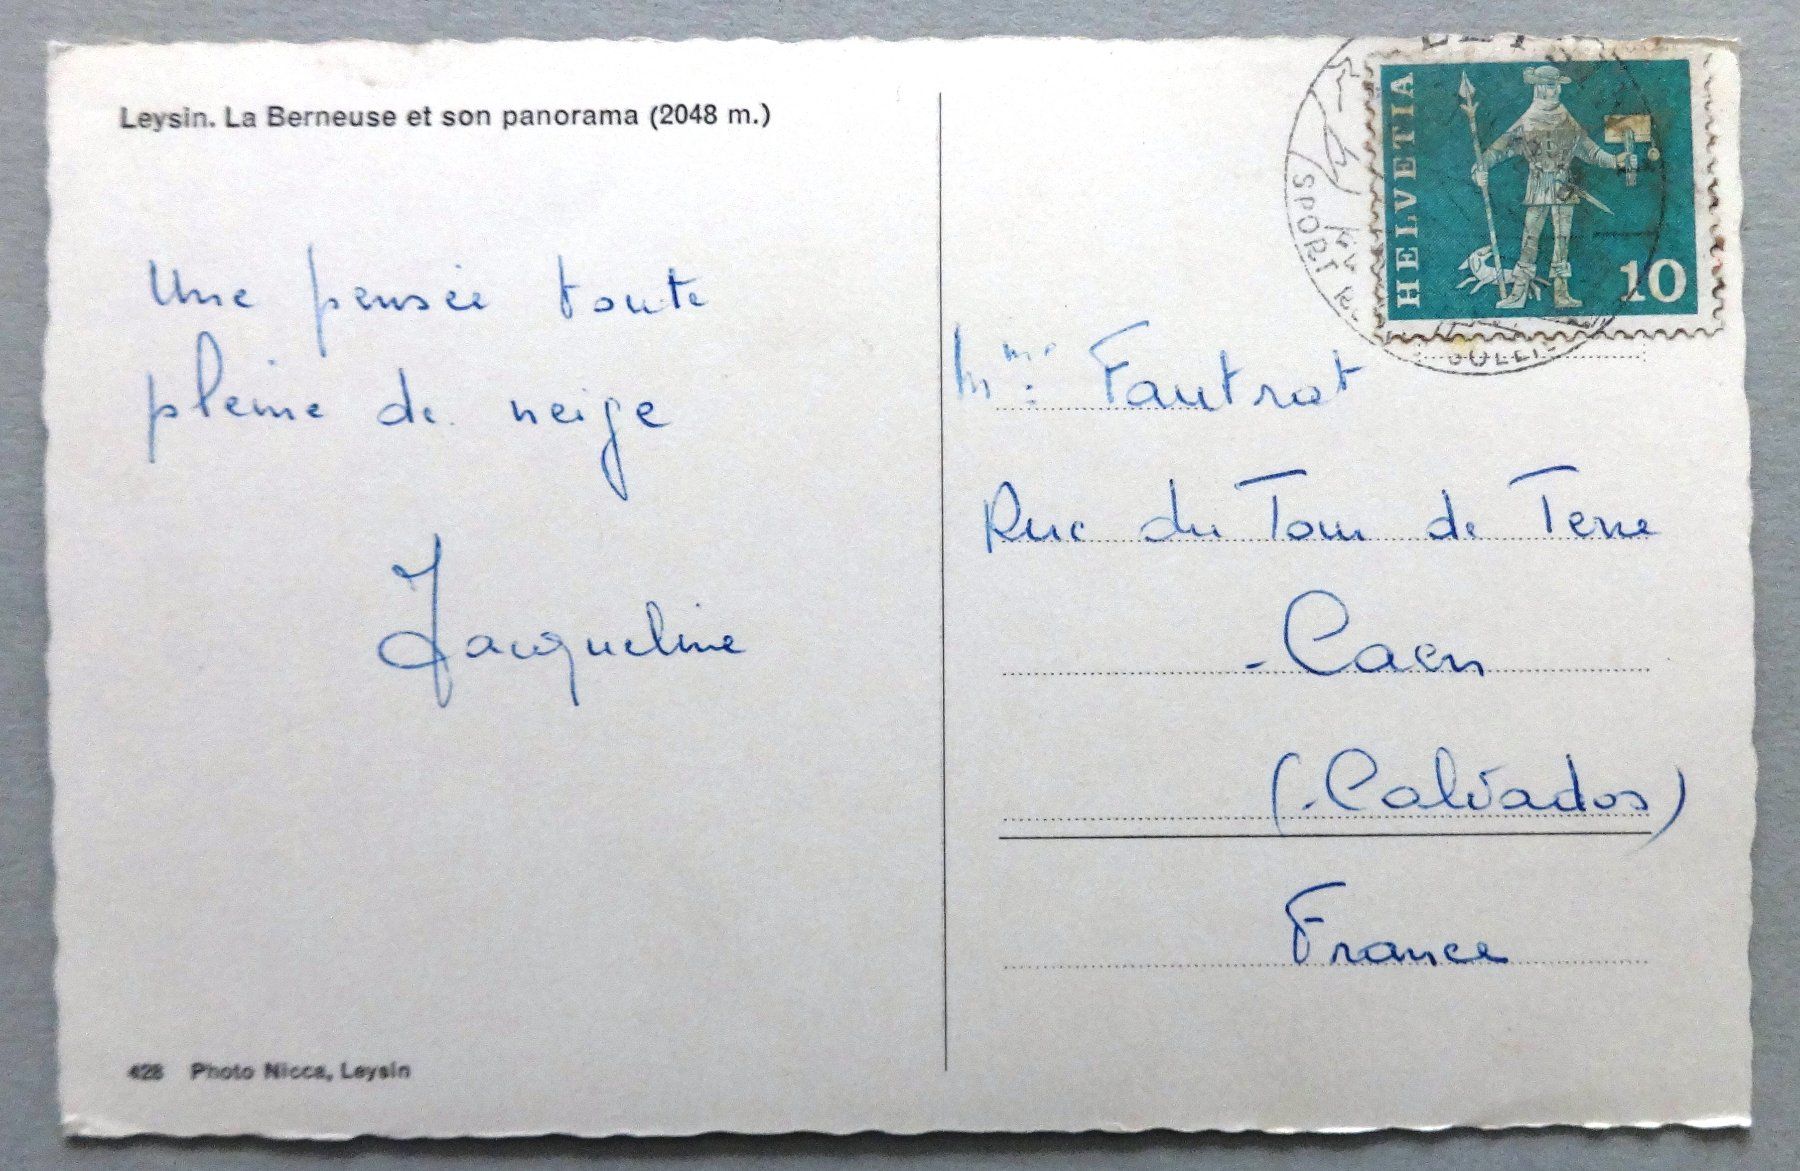 Leysin. La Berneuse et son panorama (2048 m.)
Une pensée toute
pleine de neige
Jacqueline
428 Photo Nicca, Leysin
HELVETIA
10
SPORT
SOLEIL
Mme. Fautrat
Rue du Tour de Terre
- Caen
(Calvados)
France